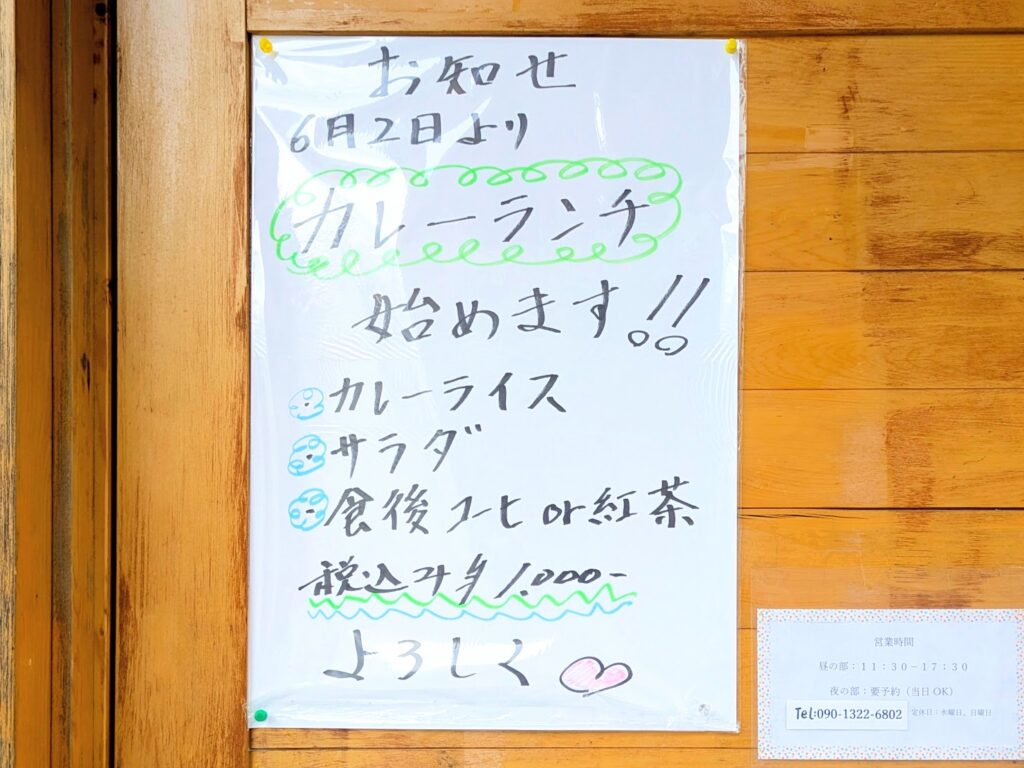 お知せ
6月2日より
カレーランチ
始めます!!
カレーライス
サラダ
食後コーヒ or 紅茶
税込み 1.000-
よろしく
営業時間
昼の部：11：30－17：30
夜の部：要予約（当日OK）
Tel:090-1322-6802 定休日：水曜日、日曜日